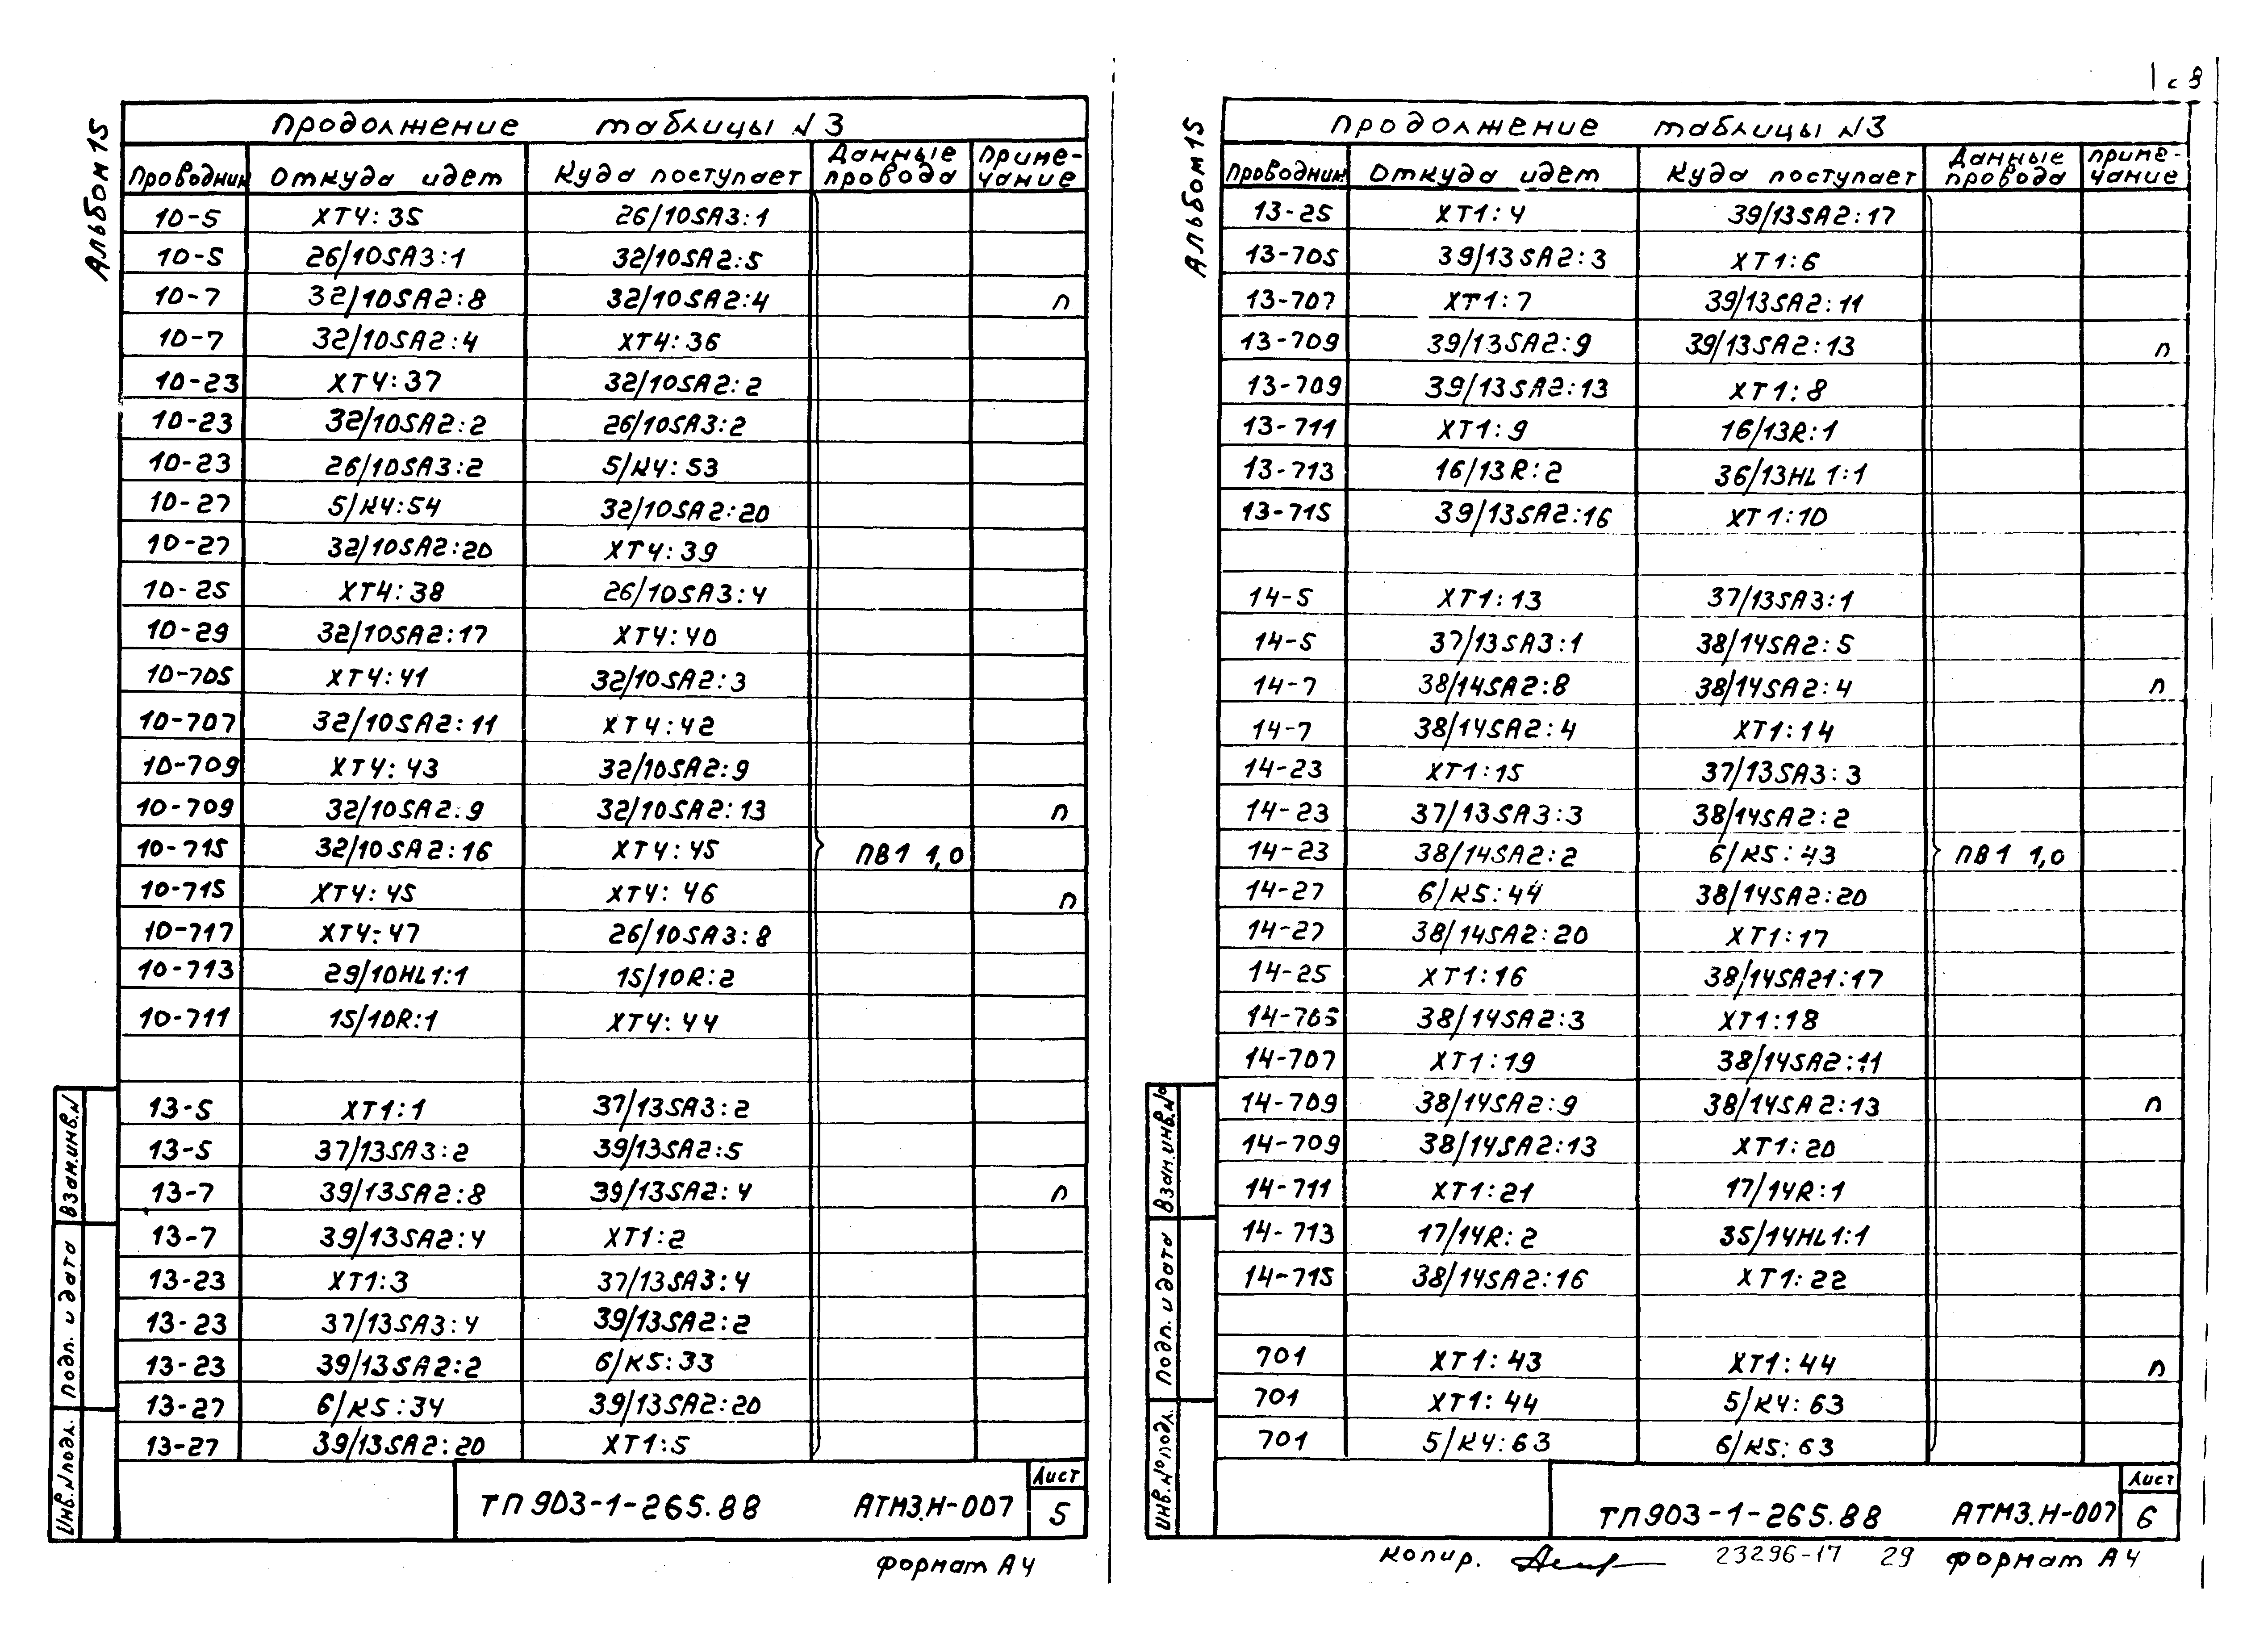 с 8
Альбом 15
Продолжение таблицы N 3
Проводник Откуда идет Куда поступает Данные провода Приме-чание
10-5 XT4:35 26/10SA3:1
10-5 26/10SA3:1 32/10SA2:5
10-7 32/10SA2:8 32/10SA2:4 п
10-7 32/10SA2:4 XT4:36
10-23 XT4:37 32/10SA2:2
10-23 32/10SA2:2 26/10SA3:2
10-23 26/10SA3:2 5/K4:53
10-27 5/K4:54 32/10SA2:20
10-27 32/10SA2:20 XT4:39
10-25 XT4:38 26/10SA3:4
10-29 32/10SA2:17 XT4:40
10-705 XT4:41 32/10SA2:3
10-707 32/10SA2:11 XT4:42
10-709 XT4:43 32/10SA2:9
10-709 32/10SA2:9 32/10SA2:13 п
10-715 32/10SA2:16 XT4:45 ПВ1 1,0
10-715 XT4:45 XT4:46 п
10-717 XT4:47 26/10SA3:8
10-713 29/10HL1:1 15/10R:2
10-711 15/10R:1 XT4:44
13-5 XT1:1 37/13SA3:2
13-5 37/13SA3:2 39/13SA2:5
13-7 39/13SA2:8 39/13SA2:4 п
13-7 39/13SA2:4 XT1:2
13-23 XT1:3 37/13SA3:4
13-23 37/13SA3:4 39/13SA2:2
13-23 39/13SA2:2 6/K5:33
13-27 6/K5:34 39/13SA2:20
13-27 39/13SA2:20 XT1:5
Взам.инв.N
Подп. и дата
Инв.N подл.
ТП 903-1-265.88 АТМ3.Н-007 Лист 5
Формат А4
Альбом 15
Продолжение таблицы N3
Проводник Откуда идет Куда поступает Данные провода Приме-чание
13-25 XT1:4 39/13SA2:17
13-705 39/13SA2:3 XT1:6
13-707 XT1:7 39/13SA2:11
13-709 39/13SA2:9 39/13SA2:13 п
13-709 39/13SA2:13 XT1:8
13-711 XT1:9 16/13R:1
13-713 16/13R:2 36/13HL1:1
13-715 39/13SA2:16 XT1:10
14-5 XT1:13 37/13SA3:1
14-5 37/13SA3:1 38/14SA2:5
14-7 38/14SA2:8 38/14SA2:4 п
14-7 38/14SA2:4 XT1:14
14-23 XT1:15 37/13SA3:3
14-23 37/13SA3:3 38/14SA2:2
14-23 38/14SA2:2 6/K5:43 ПВ1 1,0
14-27 6/K5:44 38/14SA2:20
14-27 38/14SA2:20 XT1:17
14-25 XT1:16 38/14SA21:17
14-705 38/14SA2:3 XT1:18
14-707 XT1:19 38/14SA2:11
14-709 38/14SA2:9 38/14SA2:13 п
14-709 38/14SA2:13 XT1:20
14-711 XT1:21 17/14R:1
14-713 17/14R:2 35/14HL1:1
14-715 38/14SA2:16 XT1:22
701 XT1:43 XT1:44 п
701 XT1:44 5/K4:63
701 5/K4:63 6/K5:63
Взам.инв.№
Подп. и дата
Инв.№ подл.
ТП 903-1-265.88 АТМ3.Н-007 Лист 6
Копир. 23296-17 29 Формат А4